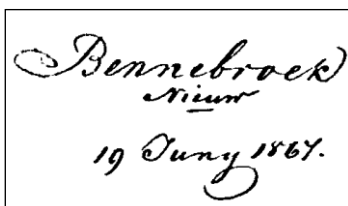 Bennebroek
Nieuw
19 Juny 1867.